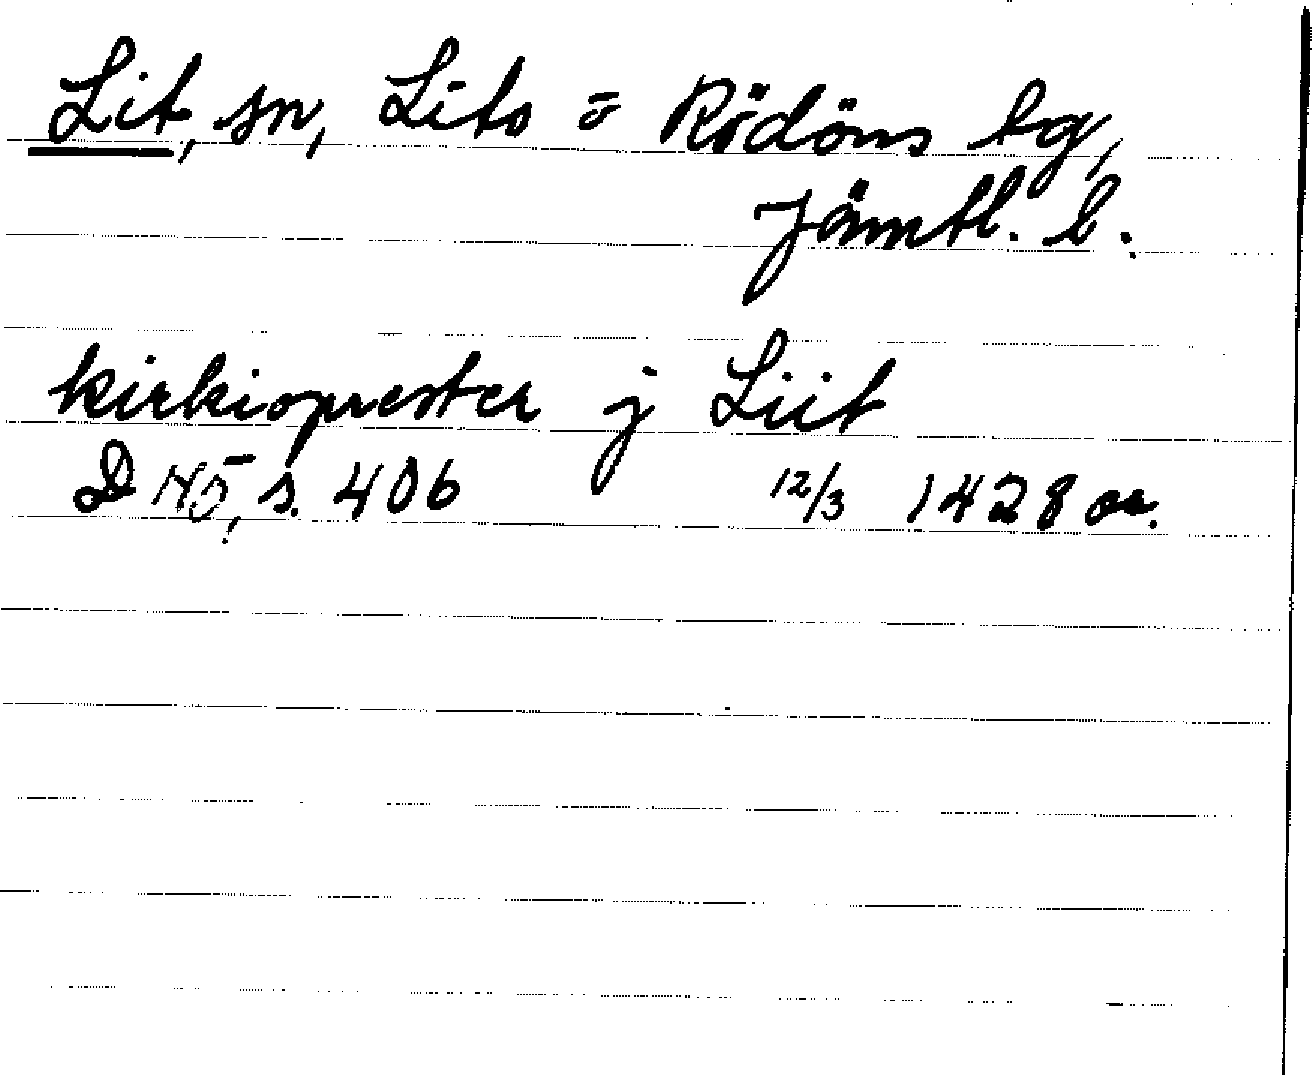 Lit, sn, Lits o Rödöns tg,
Jämtl. l.
kirkioprester j Liit
D N 5, s. 406 12/3 1428 or.